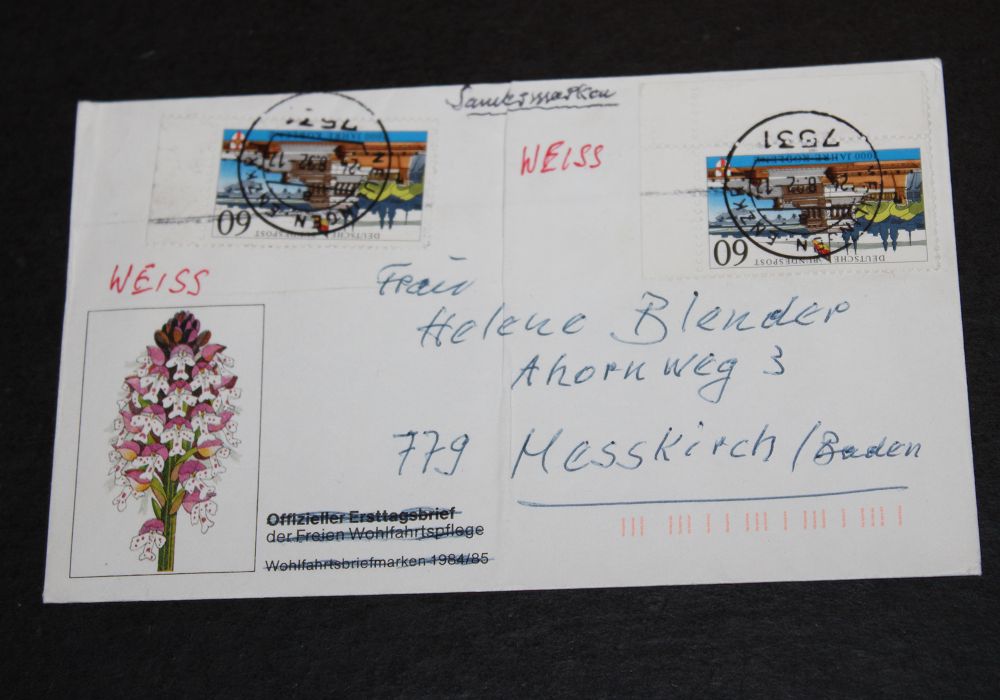 Sondermarken
7531
2000 JAHRE KOBLENZ
60
DEUTSCHE BUNDESPOST
WEISS
7531
2000 JAHRE KOBLENZ
60
DEUTSCHE BUNDESPOST
WEISS
Frau
Helene Blender
Ahornweg 3
779 Messkirch / Baden
Offizieller Ersttagsbrief
der Freien Wohlfahrtspflege
Wohlfahrtsbriefmarken 1984/85